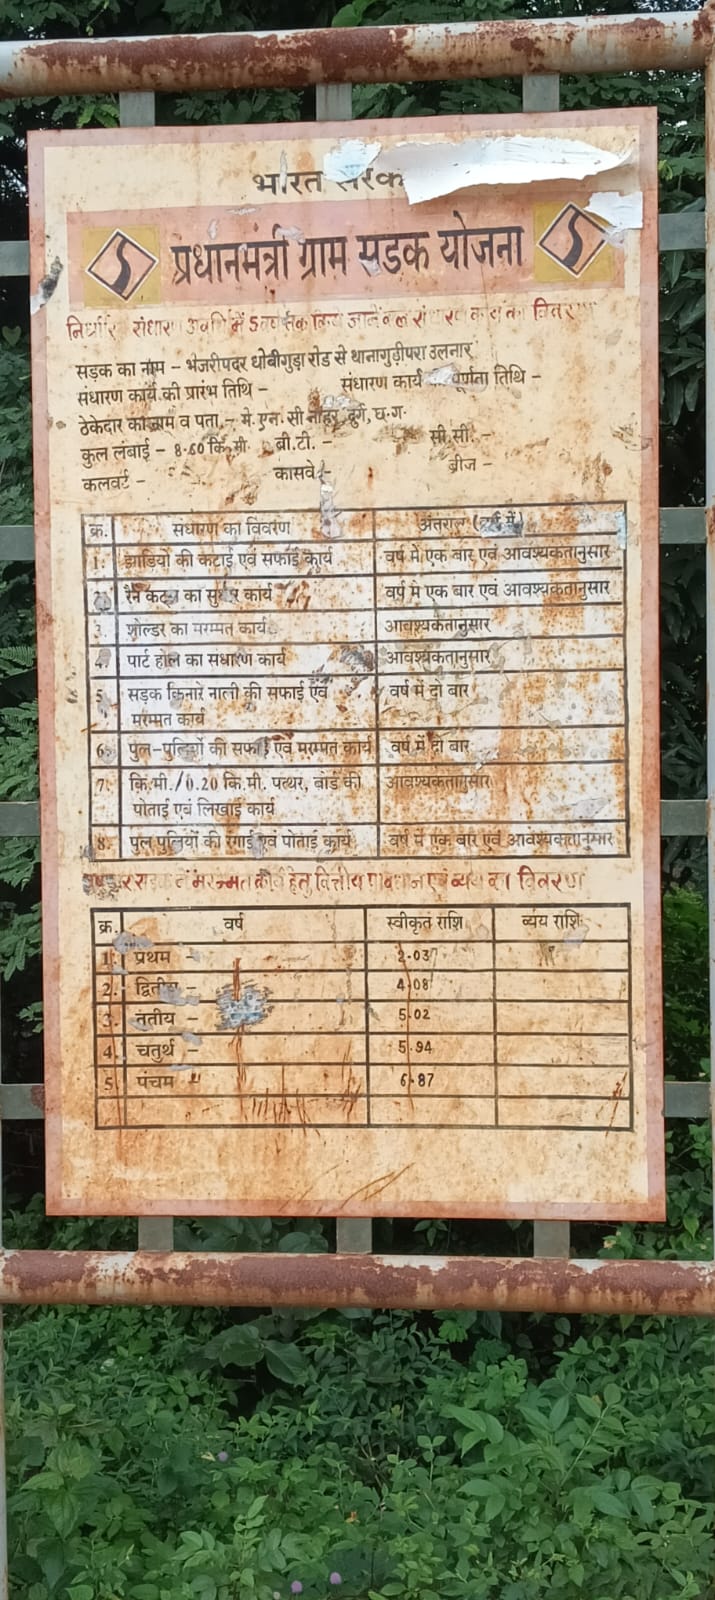 भारत सरक
प्रधानमंत्री ग्राम सड़क योजना
में 5 वर्ष तक किये जाने वाले का विवरण
सड़क का नाम - भेजरीपदर धोबीगुड़ा रोड से थानागुड़ीपरा उलनार
संधारण कार्य की प्रारंभ तिथि - संधारण कार्य पूर्णता तिथि -
ठेकेदार का नाम व पता - मे. एन. सी नाहर, दुर्ग, छ.ग.
कुल लंबाई - 8.60 कि.मी. बी.टी. - सी.सी. -
कलवर्ट - कासवे - ब्रीज -
क्र. संधारण का विवरण अंतराल (वर्ष में)
1. झाडियों की कटाई एवं सफाई कार्य वर्ष में एक बार एवं आवश्यकतानुसार
2. रैन कट्स का सुधार कार्य वर्ष मे एक बार एवं आवश्यकतानुसार
3. शोल्डर का मरम्मत कार्य आवश्यकतानुसार
4. पार्ट होल का सधारण कार्य आवश्यकतानुसार
5 सड़क किनारे नाली की सफाई एवं वर्ष में दो बार
मरम्मत कार्य
6. पुल-पुलियों की सफाई एवं मरम्मत कार्य वर्ष में दो बार
7. कि.मी./0.20 कि.मी. पत्थर, बोर्ड की आवश्यकतानुसार
पोताई एवं लिखाई कार्य
8. पुल पुलियों की रंगाई एवं पोताई कार्य वर्ष में एक बार एवं आवश्यकतानुसार
मरम्मत कार्य हेतु वित्तीय प्रावधान एवं व्यय का विवरण
क्र. वर्ष स्वीकृत राशि व्यय राशि
1. प्रथम - 2.03
2. द्वितीय - 4.08
3. तृतीय - 5.02
4. चतुर्थ - 5.94
5. पंचम " 6.87